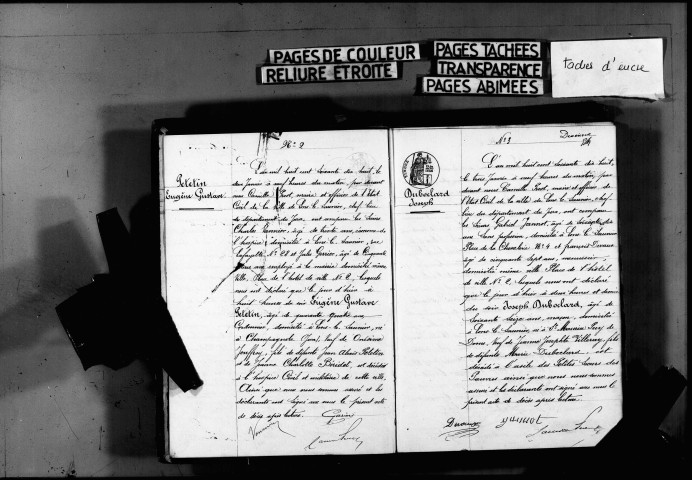 PAGES DE COULEUR
RELIURE ETROITE
PAGES TACHEES
TRANSPARENCE
PAGES ABIMEES
taches d'encre
N° 2
Peletin
Eugène Gustave
L'an mil huit cent soixante dix huit, le
deux Janvier à neuf heures du matin, par devant
nous Camille Prost, maire et officier de l'Etat
Civil de la ville de Lons le Saunier, chef lieu
du département du Jura, ont comparu les Sieurs
Charles âgé de trente ans,
l'hospice domicilié à Lons le Saunier, rue
Lafayette, N° 28 et Jules âgé de Cinquante
ans employé à la mairie domicilié même
ville, Place de l'hôtel de ville N° 2, lesquels
nous ont déclaré que le jour d'hier à
huit heures du soir Eugène Gustave
Peletin, âgé de quarante quatre ans
domicilié à Lons le Saunier, né
à Champagnole (Jura), veuf de
fils de défunts Jean Alexis Peletin
et de Jeanne Charlotte est décédé
à l'hospice Civil et militaire de cette ville
Ainsi que nous nous sommes assuré et les
déclarants ont signé avec nous le présent acte
de décès après lecture.
N° 3
Duboclard
Joseph
L'an mil huit cent soixante dix huit,
le trois Janvier à neuf heures du matin, par
devant nous Camille Prost, maire et officier de
l'Etat Civil de la ville de Lons le Saunier, chef
lieu du département du Jura, ont comparu
les Sieurs Gabriel Jannot, âgé de
ans sans profession, domicilié à Lons le Saunier
Place de la Chevalerie N° 4 et françois
âgé de cinquante sept ans, menuisier,
domicilié même ville Place de l'hôtel
de ville N° 2, lesquels nous ont déclaré
que le jour d'hier à deux heures et demie
du soir Joseph Duboclard, âgé de
soixante seize ans, maçon, domicilié
à Lons le Saunier, né à St Maurice Puy de
Dome, veuf de Jeanne Josephte fils
de défunte Marie Duboclard est
décédé à l'asile des Petites Soeurs des
Pauvres ainsi que nous nous sommes
assuré et les déclarants ont signé avec nous le
présent acte de décès après lecture.
Jannot